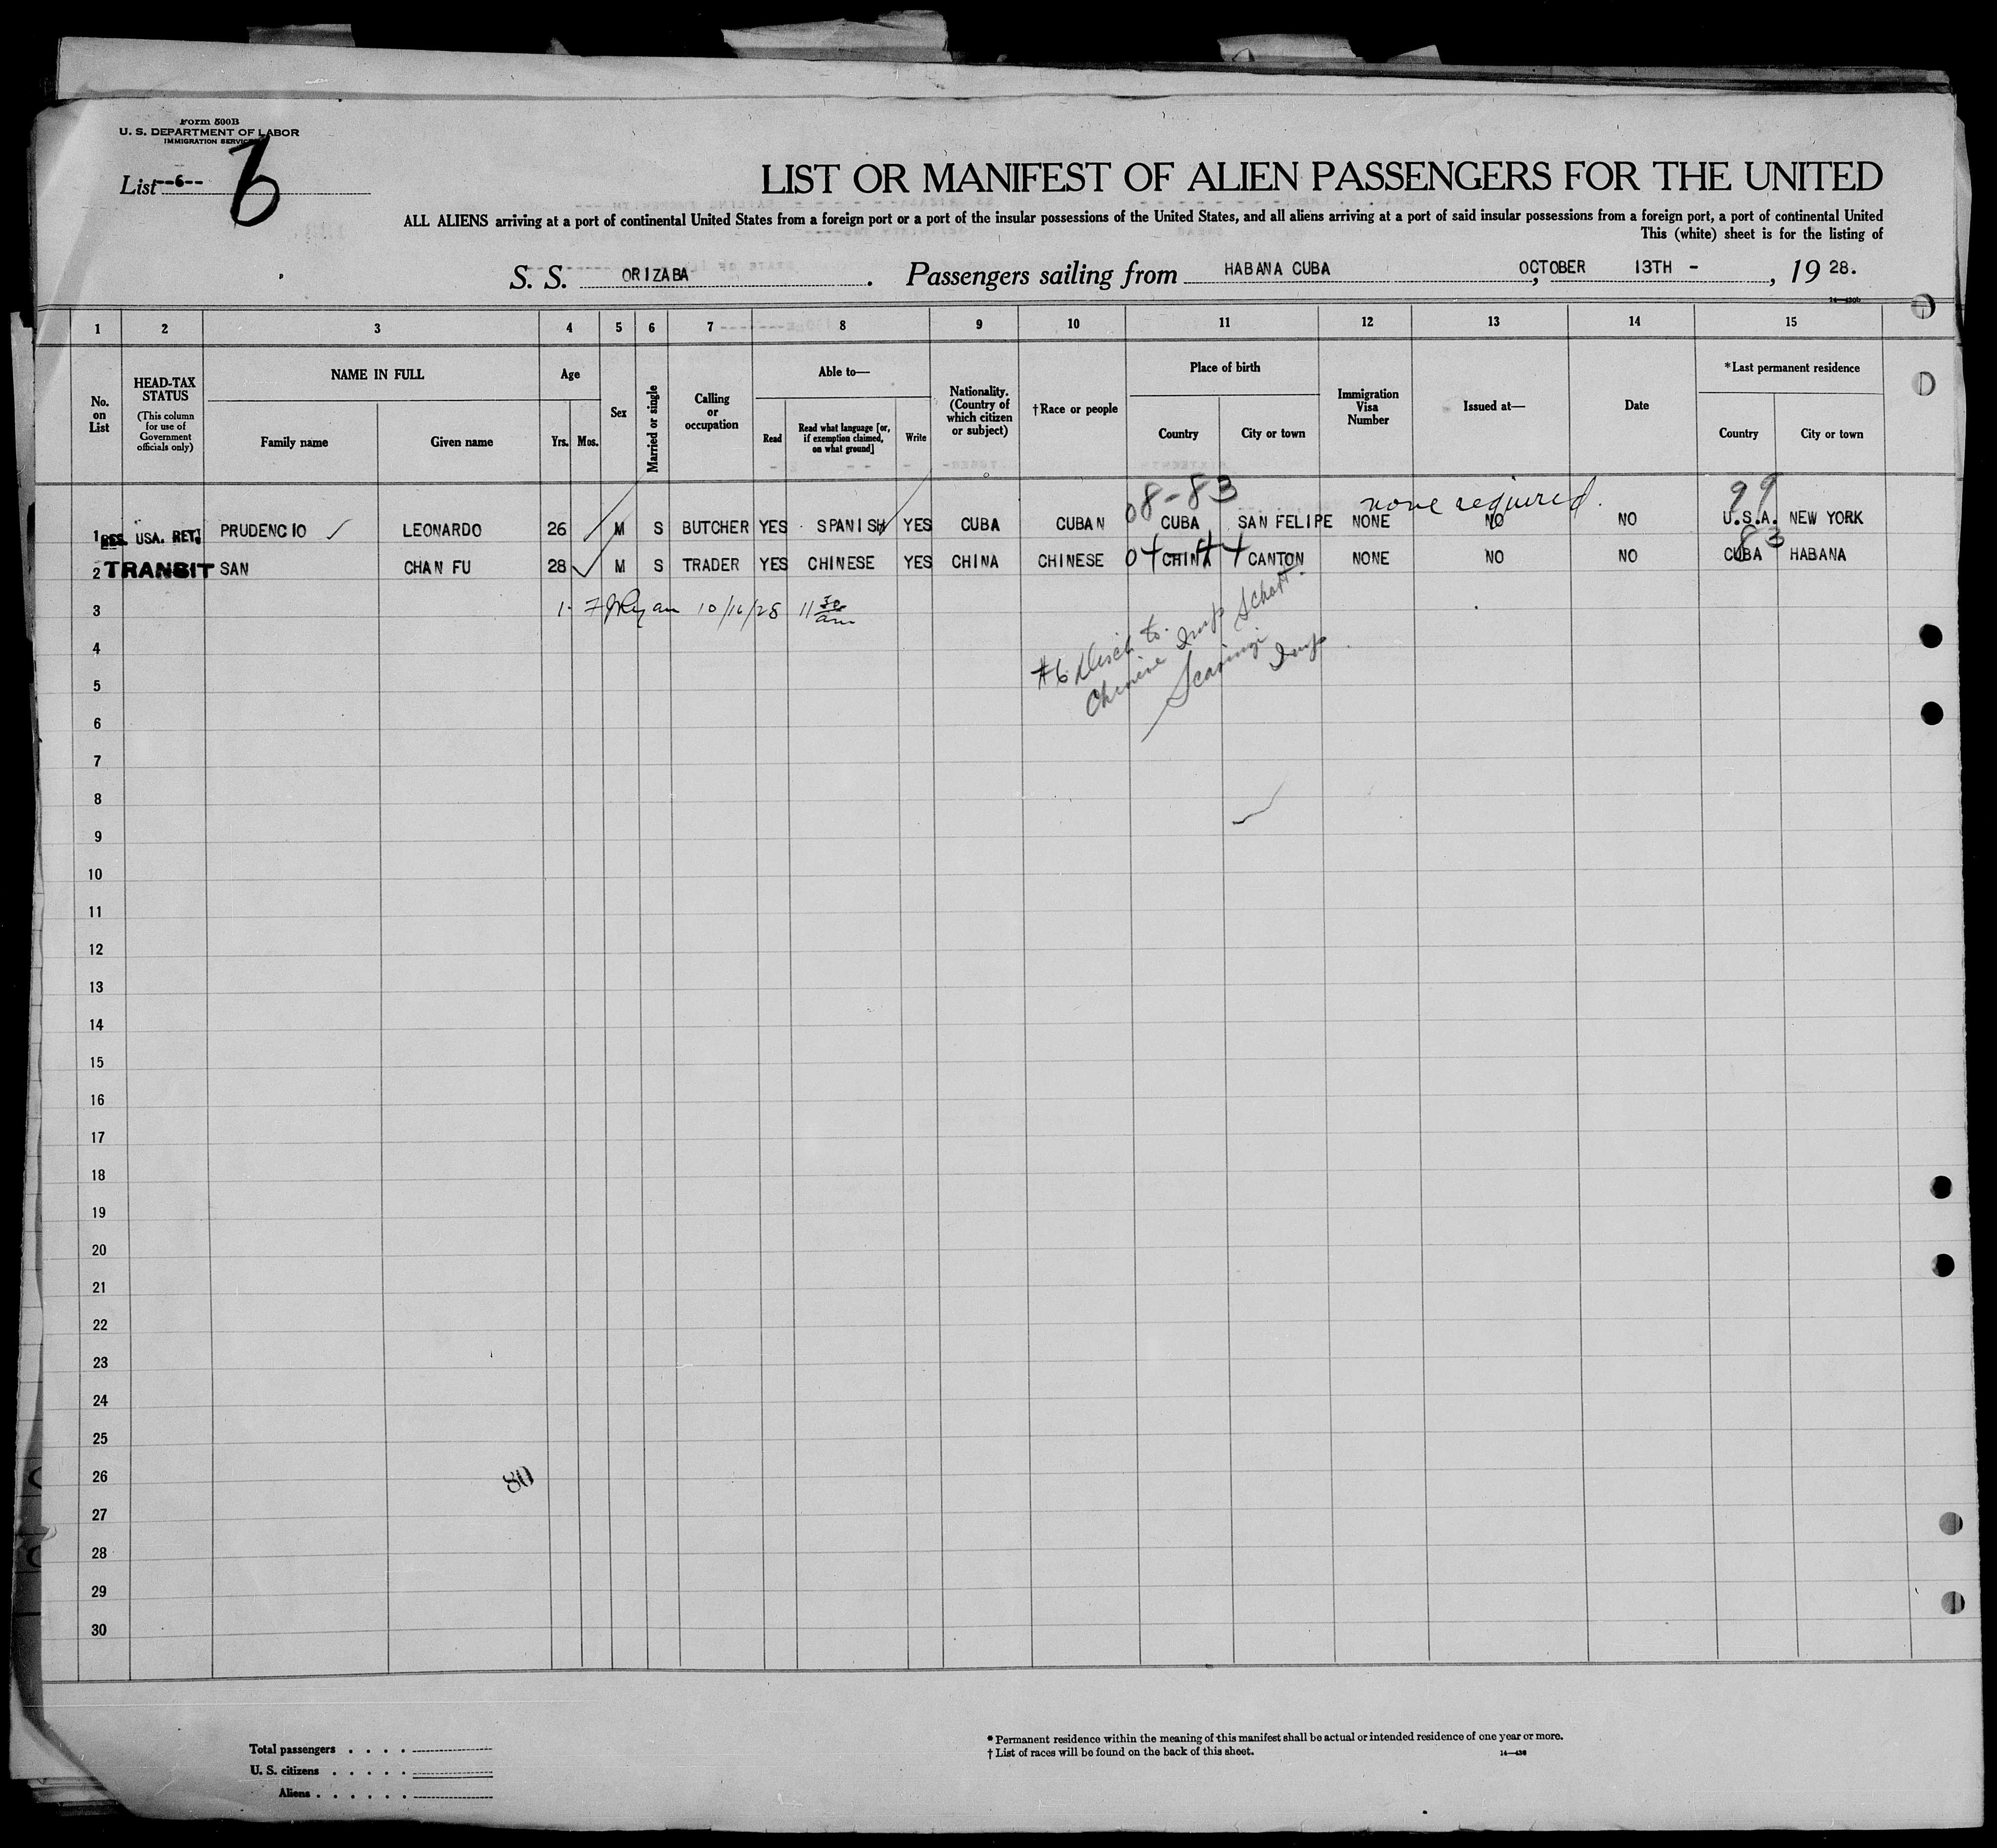 Form 500B
U. S. DEPARTMENT OF LABOR
IMMIGRATION SERVICE
List --6--
6
LIST OR MANIFEST OF ALIEN PASSENGERS FOR THE UNITED
ALL ALIENS arriving at a port of continental United States from a foreign port or a port of the insular possessions of the United States, and all aliens arriving at a port of said insular possessions from a foreign port, a port of continental United
This (white) sheet is for the listing of
S. S. ORIZABA. Passengers sailing from HABANA CUBA, OCTOBER 13TH -, 19 28.
1 2 3 4 5 6 7 8 9 10 11 12 13 14 15
No. on List
HEAD-TAX STATUS
(This column for use of Government officials only)
NAME IN FULL
Family name
Given name
Age
Yrs. Mos.
Sex
Married or single
Calling or occupation
Able to—
Read
Read what language [or, if exemption claimed, on what ground]
Write
Nationality. (Country of which citizen or subject)
†Race or people
Place of birth
Country
City or town
Immigration Visa Number
Issued at—
Date
*Last permanent residence
Country
City or town
08-83 none required. 99
1 RES. USA. RET. PRUDENCIO LEONARDO 26 M S BUTCHER YES SPANISH YES CUBA CUBAN CUBA SAN FELIPE NONE NO NO U.S.A. NEW YORK
04 44 83
2 TRANSIT SAN CHAN FU 28 M S TRADER YES CHINESE YES CHINA CHINESE CHINA CANTON NONE NO NO CUBA HABANA
3 1- FJRyan 10/16/28 11 30 am
#6 Disch to
Chinese Insp
Insp
4
5
6
7
8
9
10
11
12
13
14
15
16
17
18
19
20
21
22
23
24
25
26
80
27
28
29
30
Total passengers . . . .
U. S. citizens . . . . .
Aliens . . . . . .
* Permanent residence within the meaning of this manifest shall be actual or intended residence of one year or more.
† List of races will be found on the back of this sheet.
14—430